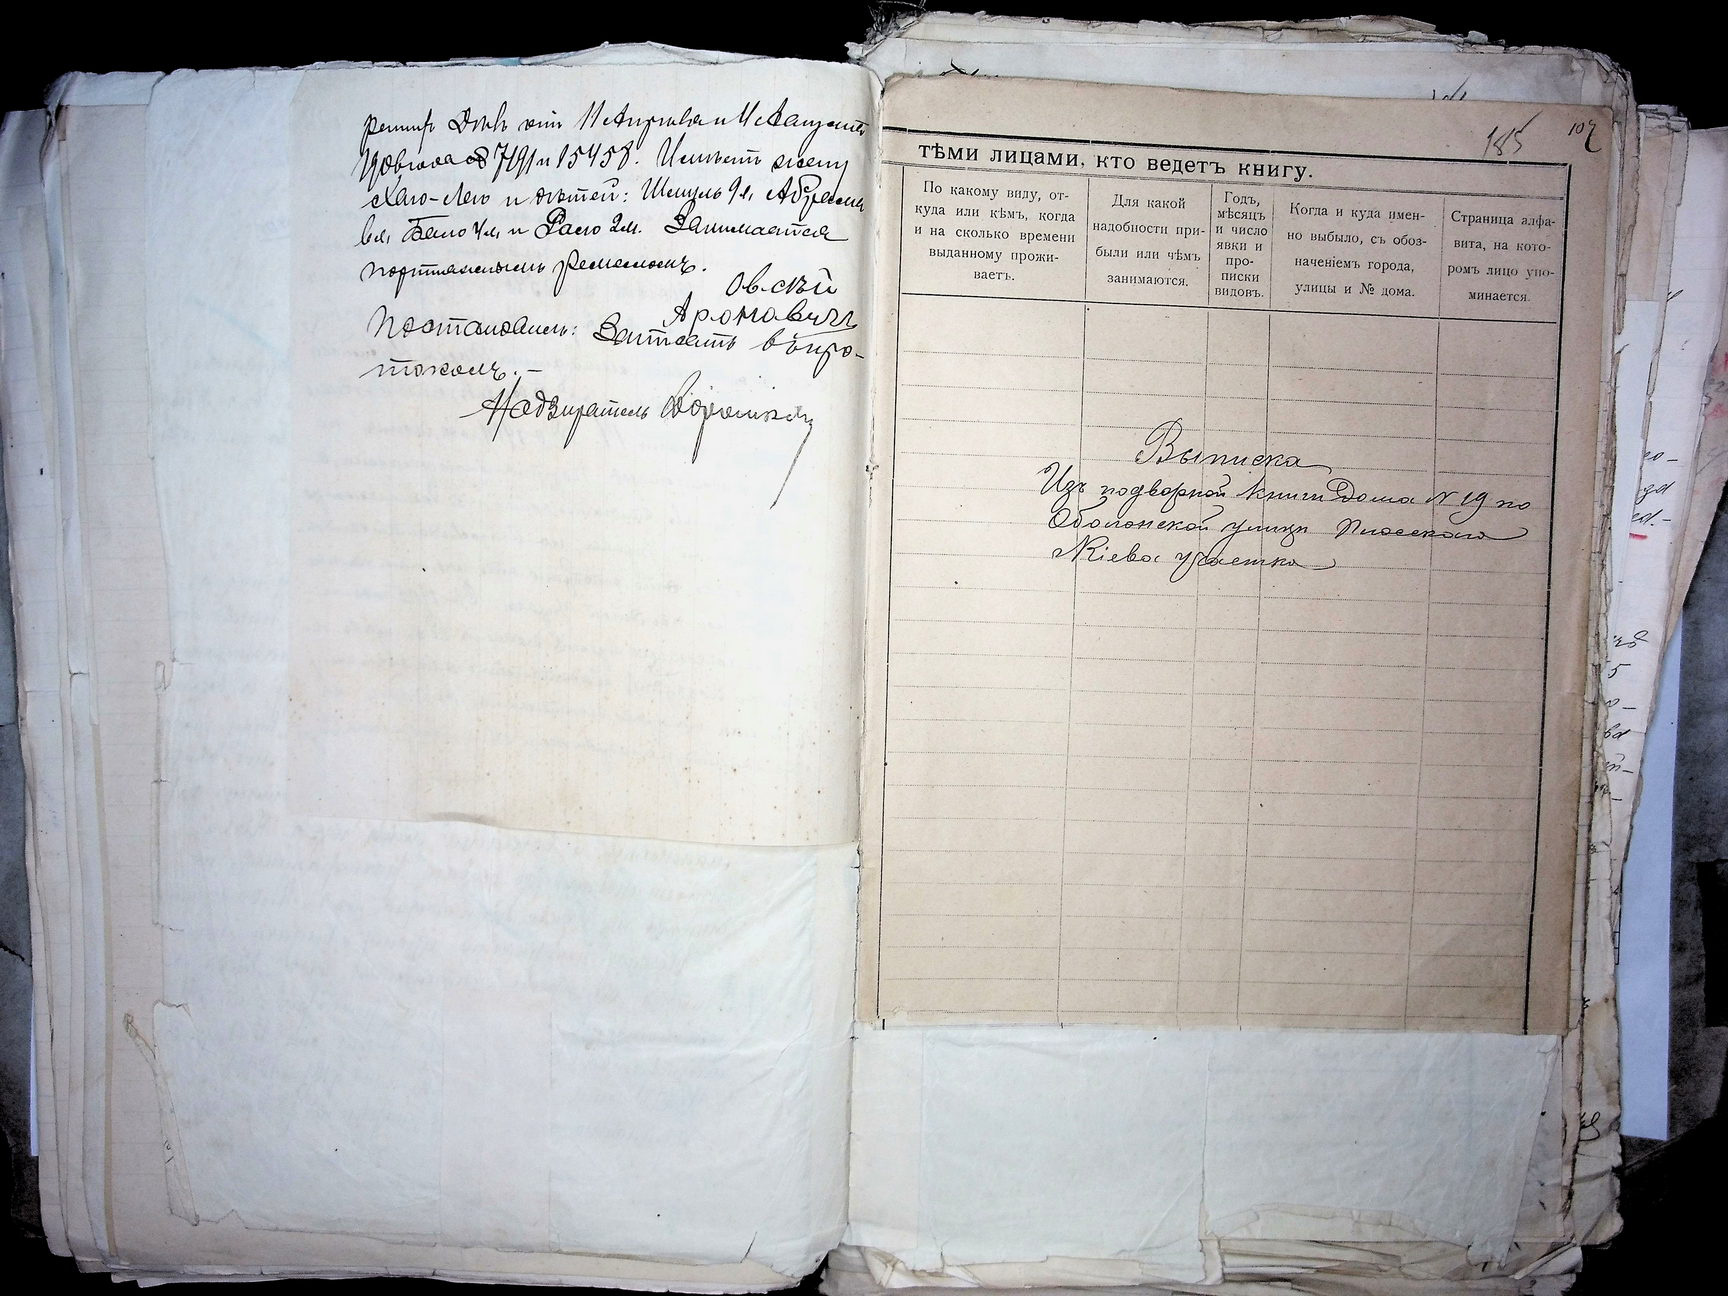 11 Апрѣля и 11 Августа
1908 года 8719 и 15458. Имѣетъ жену
Хаю-Лею и дѣтей: Шмуль 9 л. Абрама
6 л. Бейлю 4 л. и Рasю 2 л. Занимается
портняжнымъ ремесломъ.
Овсѣй
Ароновичъ
Постановилъ: Записать въ про-
токолъ.-
Надзиратель
185
107
тѣми лицами, кто ведетъ книгу.
По какому виду, от-
куда или кѣмъ, когда
и на сколько времени
выданному прожи-
ваетъ.
Для какой
надобности при-
были или чѣмъ
занимаются.
Годъ,
мѣсяцъ
и число
явки и
про-
писки
видовъ.
Когда и куда имен-
но выбыло, съ обоз-
наченіемъ города,
улицы и № дома.
Страница алфа-
вита, на кото-
ромъ лицо упо-
минается.
Выписка
Изъ подворной книги Дома № 19 по
Оболонской улицѣ Плосскаго
г. Кіева участка